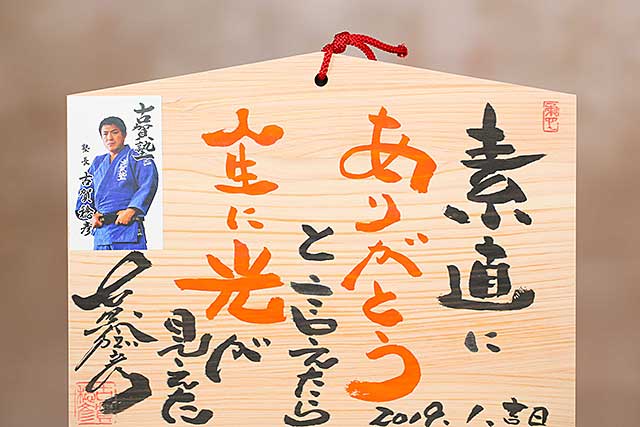 素直に
ありがとう
と言えたら
人生に光が
見えた
2019.1.吉日
古賀稔彦
古賀塾
塾長 古賀稔彦